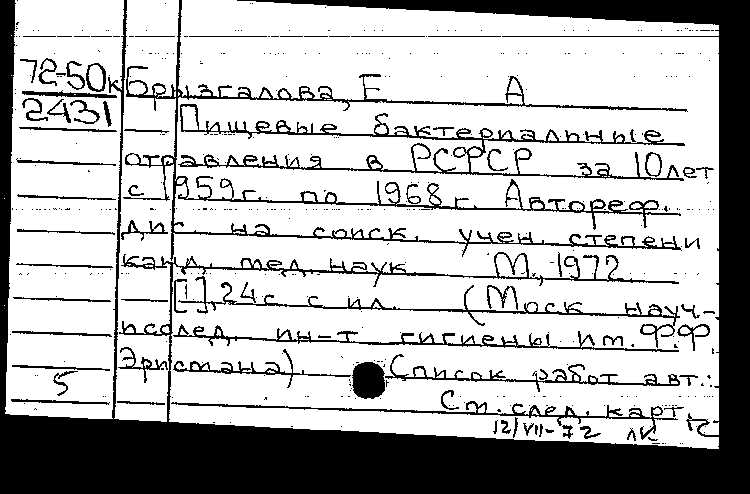 72-50к Брызгалова, Е А
2431 Пищевые бактериальные
отравления в РСФСР за 10 лет
с 1959г. по 1968г. Автореф.
дис на соиск. учен. степени
канд. мед. наук М., 1972
[1], 24с с ил. (Моск науч-
исслед. ин-т гигиены им. Ф.Ф.
Эрисмана). Список работ авт.:
5 См. след. карт.
12/VII-72 ЛК